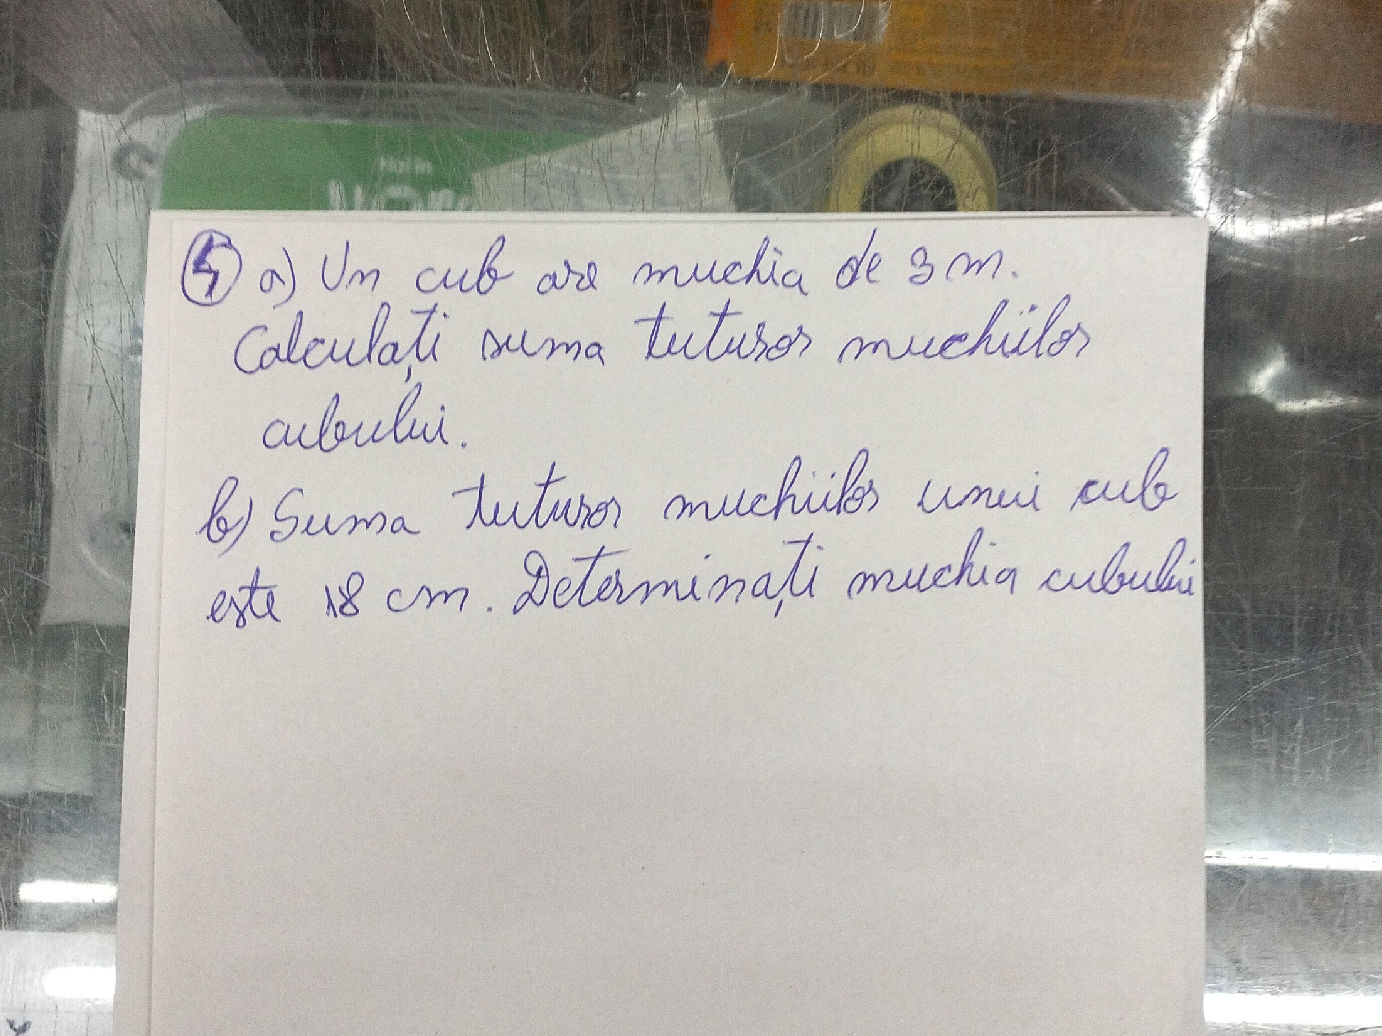 4 a) Un cub are muchia de 3 m.
Calculați suma tuturor muchiilor
cubului.
b) Suma tuturor muchiilor unui cub
este 18 cm. Determinați muchia cubului